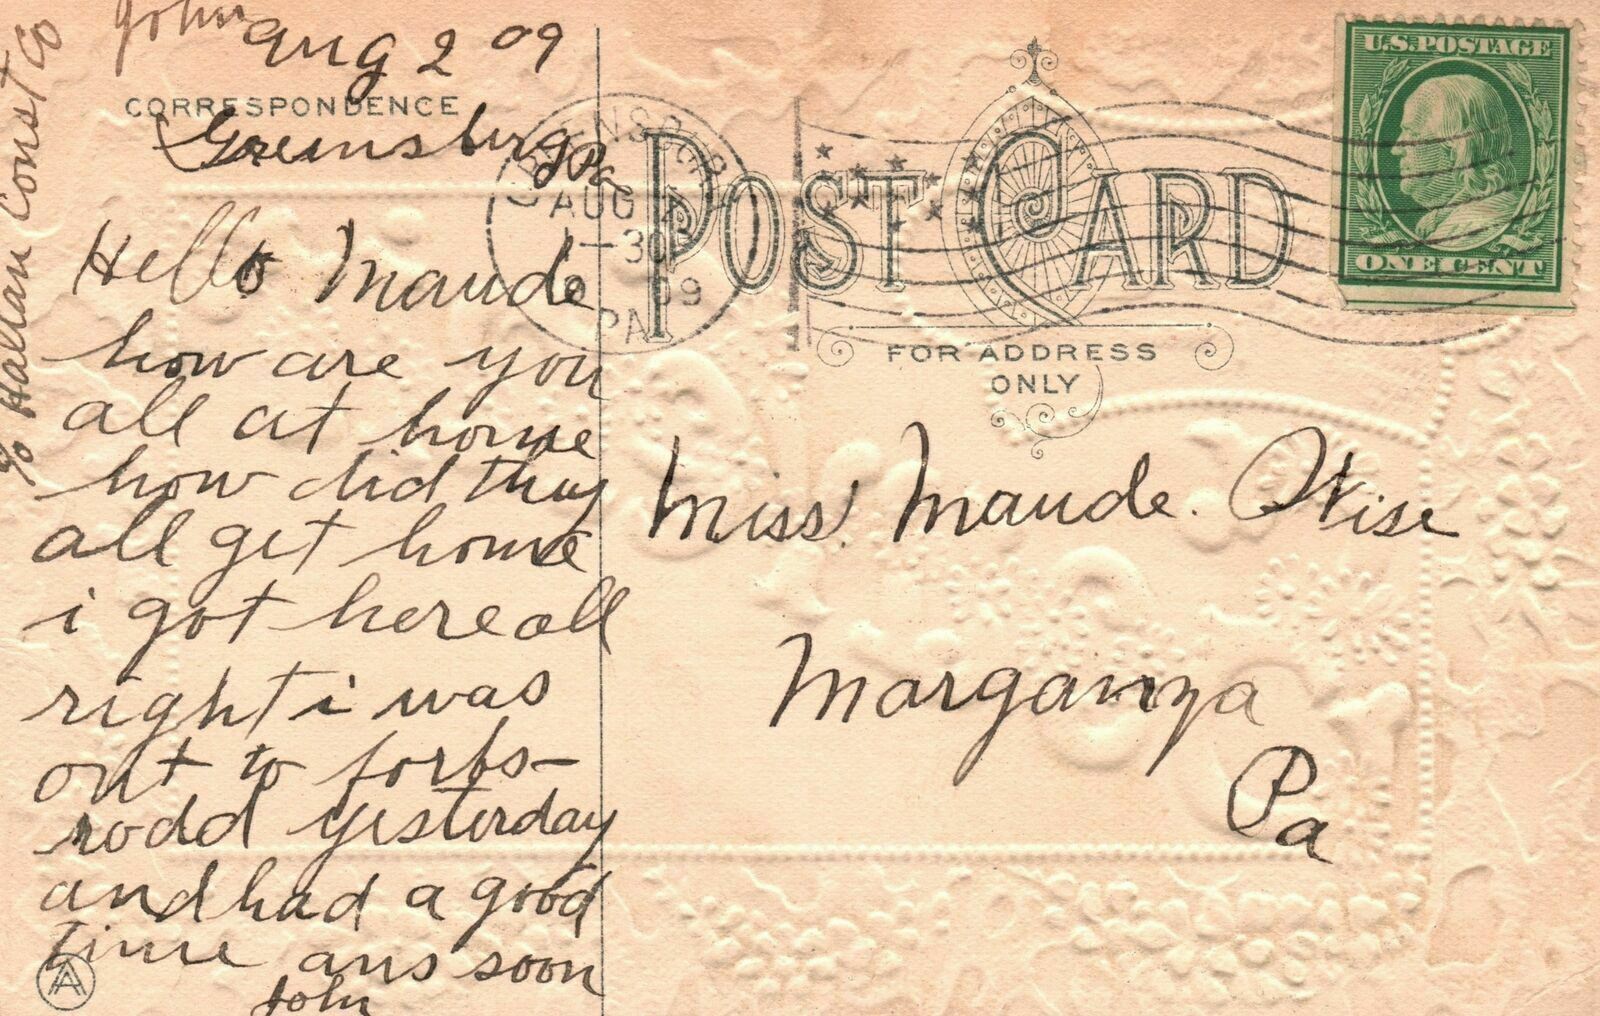 John
Aug 2 09
CORRESPONDENCE
Greensburg Pa
Hello Maude
how are you
all at home
how did they
all get home
i got here all
right i was
out to forbs-
rodd yesterday
and had a good
time ans soon
John
c/o Hallan Const Co
GREENSBURG
AUG 2
1-30
09
PA.
POST CARD
FOR ADDRESS
ONLY
U.S. POSTAGE
ONE CENT
Miss. Maude. Wise
Morganza
Pa
AA